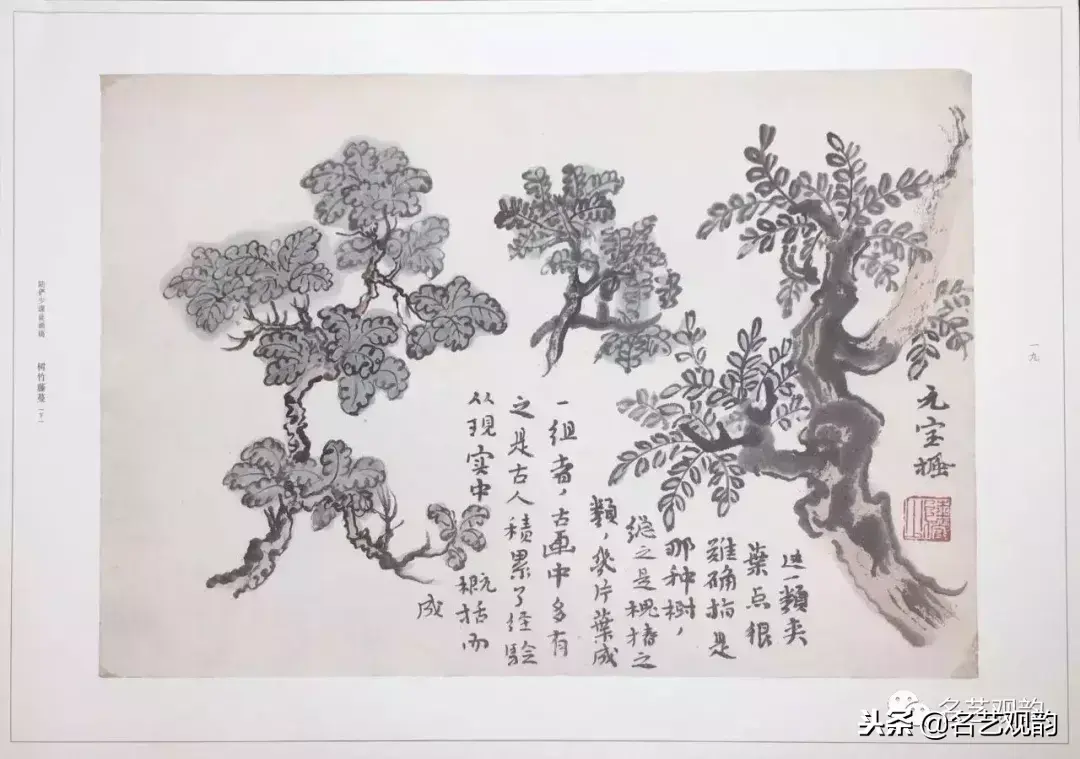 元宝槭
这一類夹
葉点很
難确指是
那种树，
總之是槐椿之
類，幾片葉成
一组者，古画中多有
之是古人積累了经驗
从现实中
概括而
成
陆俨少课徒画稿 树竹藤蔓（下）
一九
名艺观韵
头条@名艺观韵